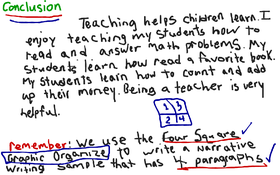 Conclusion
Teaching helps children learn. I
enjoy teaching my students how to
read and answer math problems. My
students learn how read a favorite book.
My students learn how to count and add
up their money. Being a teacher is very
helpful.
1 3
2 4
Remember: We use the Four Square
Graphic Organize to write a narrative
writing sample that has 4 paragraphs